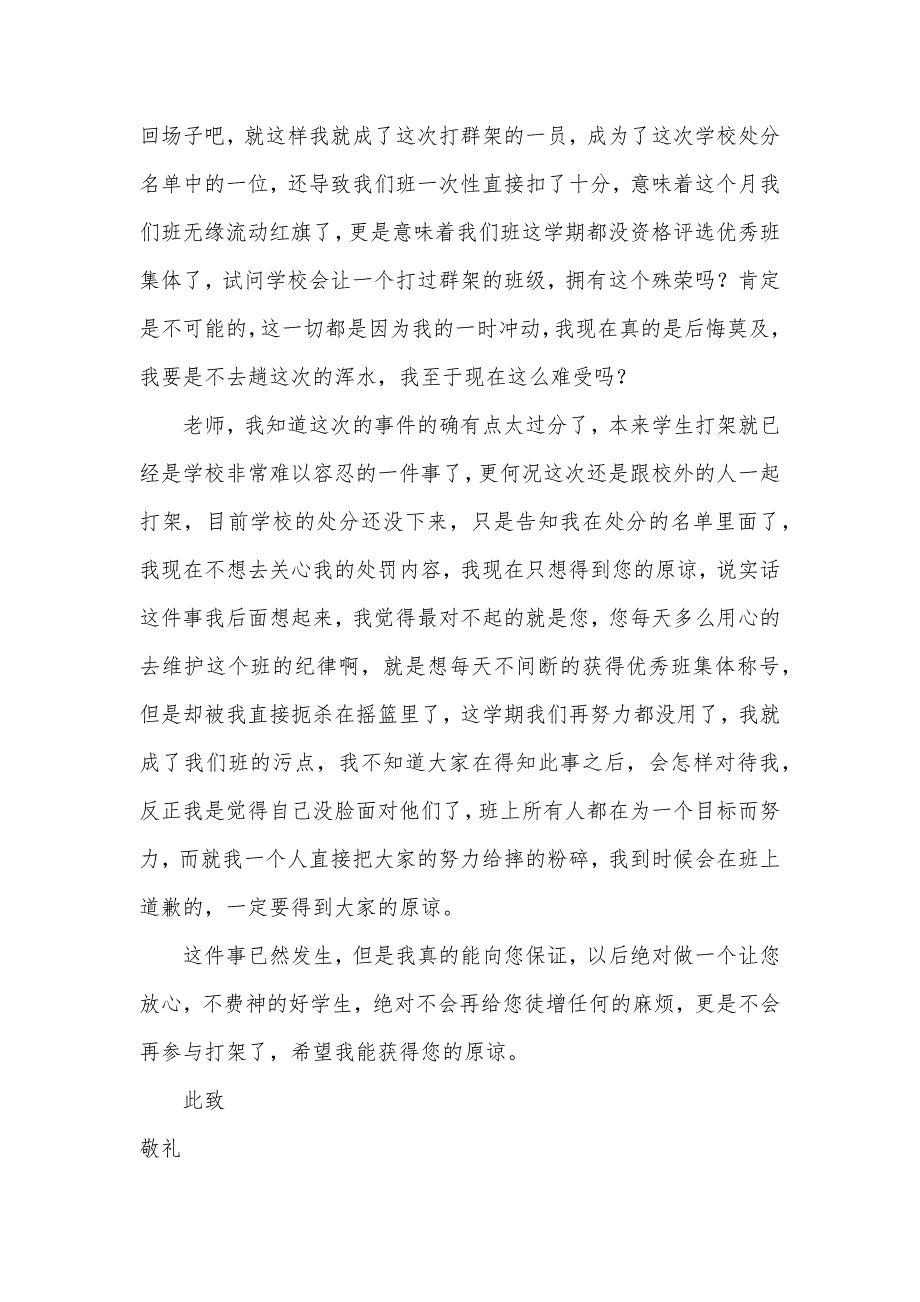 回场子吧，就这样我就成了这次打群架的一员，成为了这次学校处分
名单中的一位，还导致我们班一次性直接扣了十分，意味着这个月我
们班无缘流动红旗了，更是意味着我们班这学期都没资格评选优秀班
集体了，试问学校会让一个打过群架的班级，拥有这个殊荣吗？肯定
是不可能的，这一切都是因为我的一时冲动，我现在真的是后悔莫及，
我要是不去趟这次的浑水，我至于现在这么难受吗？
老师，我知道这次的事件的确有点太过分了，本来学生打架就已
经是学校非常难以容忍的一件事了，更何况这次还是跟校外的人一起
打架，目前学校的处分还没下来，只是告知我在处分的名单里面了，
我现在不想去关心我的处罚内容，我现在只想得到您的原谅，说实话
这件事我后面想起来，我觉得最对不起的就是您，您每天多么用心的
去维护这个班的纪律啊，就是想每天不间断的获得优秀班集体称号，
但是却被我直接扼杀在摇篮里了，这学期我们再努力都没用了，我就
成了我们班的污点，我不知道大家在得知此事之后，会怎样对待我，
反正我是觉得自己没脸面对他们了，班上所有人都在为一个目标而努
力，而就我一个人直接把大家的努力给摔的粉碎，我到时候会在班上
道歉的，一定要得到大家的原谅。
这件事已然发生，但是我真的能向您保证，以后绝对做一个让您
放心，不费神的好学生，绝对不会再给您徒增任何的麻烦，更是不会
再参与打架了，希望我能获得您的原谅。
此致
敬礼